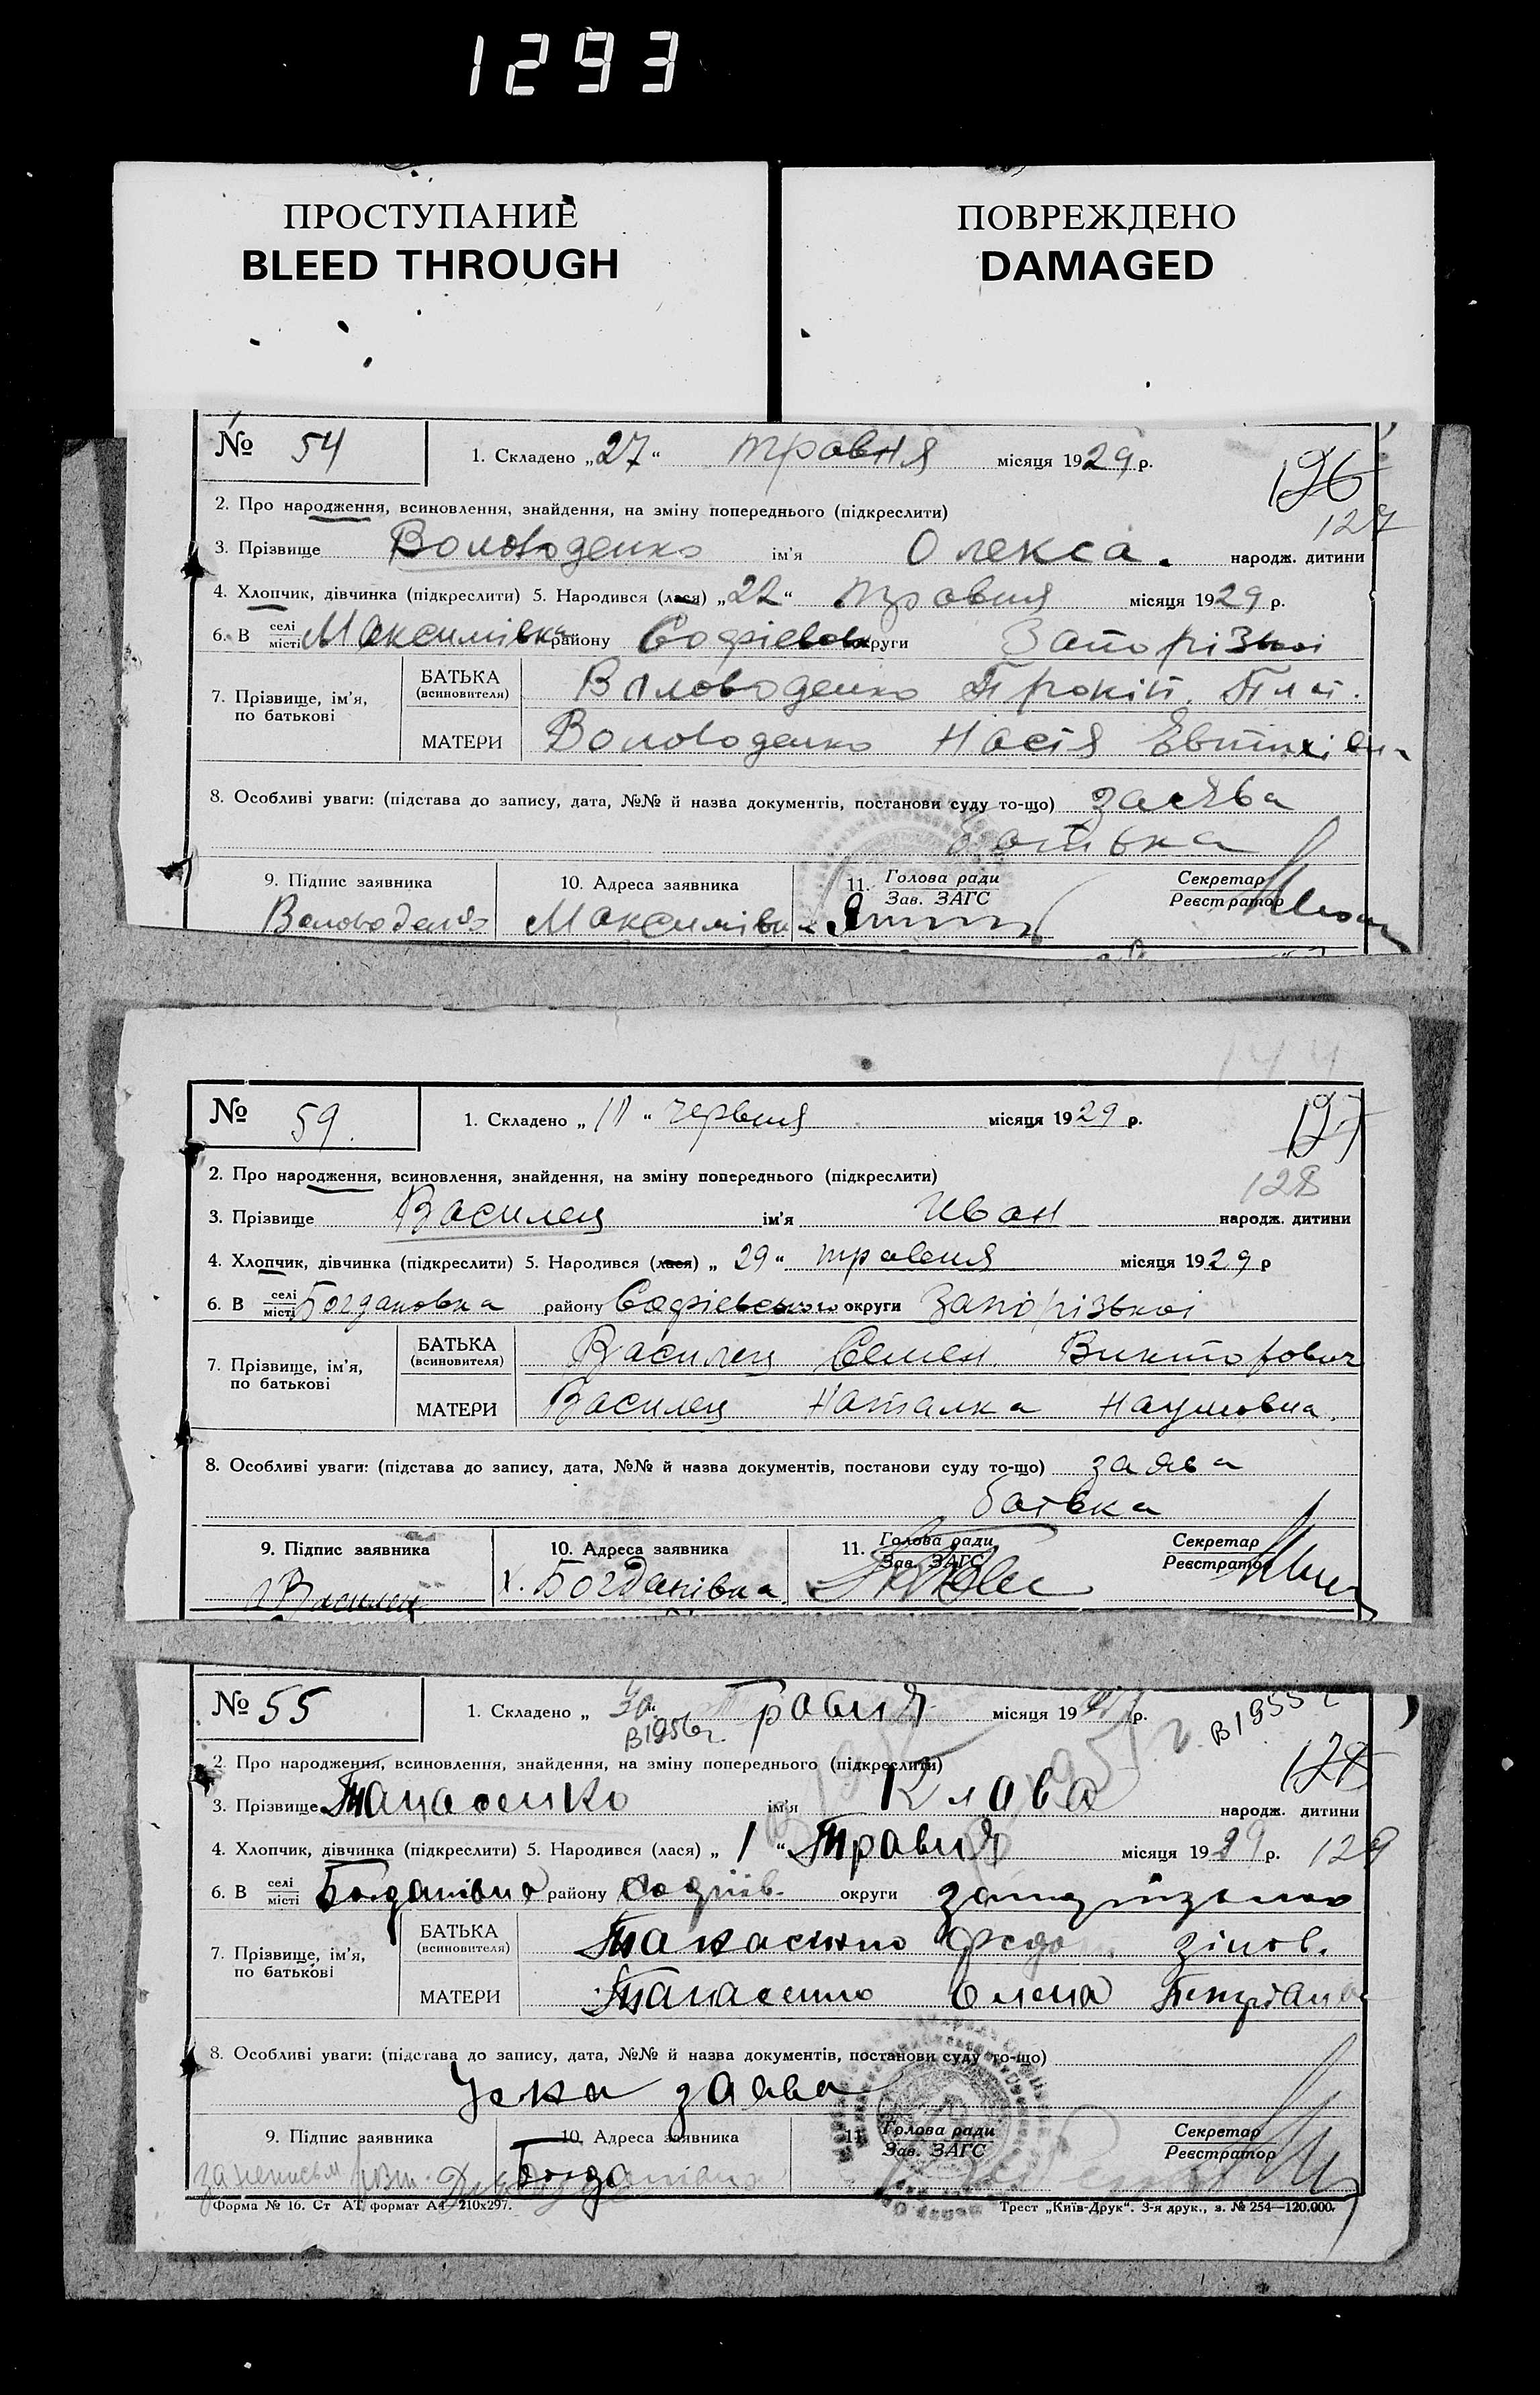 1293
ПРОСТУПАНИЕ
BLEED THROUGH
ПОВРЕЖДЕНО
DAMAGED
№ 54 1. Складено „27“ травня місяця 1929 р.
126
127
2. Про народження, всиновлення, знайдення, на зміну попереднього (підкреслити)
3. Прізвище Воловоденко ім'я Олекса. народж. дитини
4. Хлопчик, дівчинка (підкреслити) 5. Народився (лася) „22“ травня місяця 1929 р.
6. В селі місті Максимівка району Софієвськ округи Запорізької
7. Прізвище, ім'я, по батькові
БАТЬКА (всиновителя) Воловоденко Прокіп
МАТЕРИ Воловоденко Настя Евтихівна
8. Особливі уваги: (підстава до запису, дата, №№ й назва документів, постанови суду то-що) заява
батька
9. Підпис заявника 10. Адреса заявника 11. Голова ради Зав. ЗАГС Секретар Реєстратор
Воловоденко Максимівка
144
№ 59. 1. Складено „ “ червня місяця 1929 р.
127
128
2. Про народження, всиновлення, знайдення, на зміну попереднього (підкреслити)
3. Прізвище Василец ім'я Иван народж. дитини
4. Хлопчик, дівчинка (підкреслити) 5. Народився (лася) „29“ травня місяця 1929 р
6. В селі місті Богдановка району Софієвського округи Запорізької
7. Прізвище, ім'я, по батькові
БАТЬКА (всиновителя) Василец Семен Викторович
МАТЕРИ Василец Наталка Наумовна.
8. Особливі уваги: (підстава до запису, дата, №№ й назва документів, постанови суду то-що) заява
батька
9. Підпис заявника 10. Адреса заявника 11. Голова ради Зав. ЗАГС Секретар Реєстратор
Василец х. Богданівка
№ 55 1. Складено „30“ Травня місяця 19 р.
В 1956 г.
В 1955 г
128
2. Про народження, всиновлення, знайдення, на зміну попереднього (підкреслити)
3. Прізвище Танасенко ім'я Клава народж. дитини
4. Хлопчик, дівчинка (підкреслити) 5. Народився (лася) „1“ Травня місяця 1929 р.
129
6. В селі місті Богданівка району Софіїв. округи
7. Прізвище, ім'я, по батькові
БАТЬКА (всиновителя) Танасенко Федо Зінов.
МАТЕРИ Танасенко Олена
8. Особливі уваги: (підстава до запису, дата, №№ й назва документів, постанови суду то-що)
Усна заява
9. Підпис заявника 10. Адреса заявника 11. Голова ради Зав. ЗАГС Секретар Реєстратор
Богданівка
Форма № 16. Ст АТ, формат А4—210х297.
Трест „Київ-Друк“. 3-я друк., з. № 254—120.000.